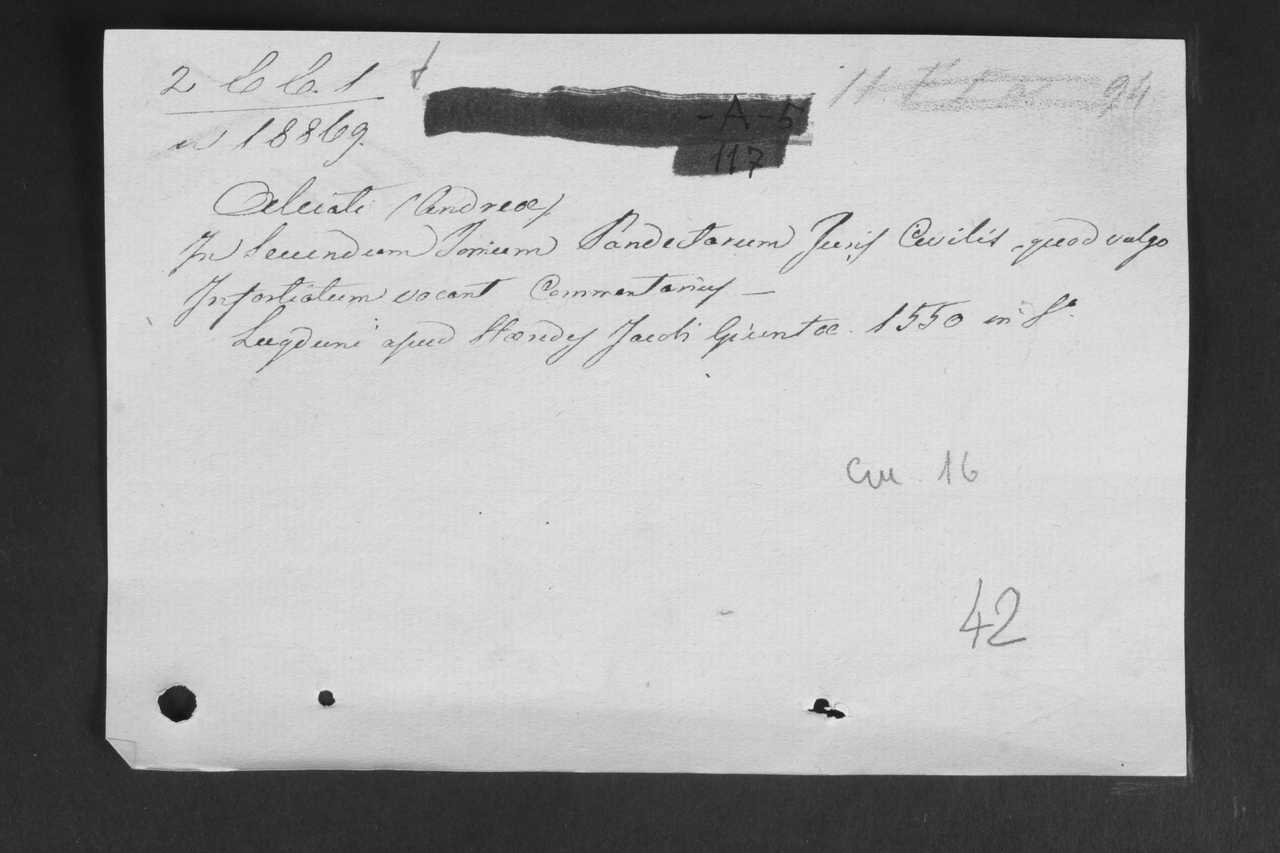 2 C C. 1
n 18869.
-A-5
117
94
Alciati (Andreæ)
In Secundum Tomum Pandectarum Juris Civilis, quod vulgo
Infortiatum vocant Commentarius —
Lugduni apud Hæredes Jacobi Giuntæ. 1550 in 8º
Cu 16
42